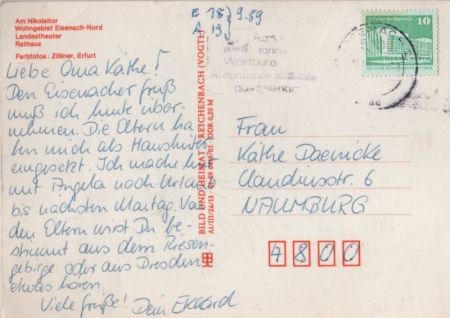 Am Nikolaitor
Wohngebiet Eisenach-Nord
Landestheater
Rathaus
Farbfotos: Zöllner, Erfurt
E 18
A 19 } 9.89
Liebe Oma Käthe!
Den Eisenacher Gruß
muß ich heute über-
nehmen. Die Eltern ha-
ben mich als Haushüter
eingesetzt. Ich mache hier
mit Angela noch Urlaub
bis nächsten Montag. Von
den Eltern wirst Du be-
stimmt aus dem Riesen-
gebirge oder aus Dresden
etwas hören.
Viele Grüße! Dein Ekkhard
BILD UND HEIMAT REICHENBACH (VOGTL)
A1/III/26/13 DDR 0,20 M
Wartburg
Automobile
aus Eisenach
10
Frau
Käthe Daenicke
Claudiusstr. 6
NAUMBURG
4800